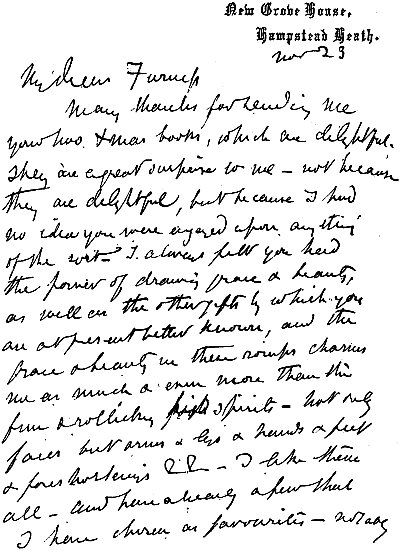 New Grove House,
Hampstead Heath.
Nov 23
My dear Furniss
Many thanks for sending me
your two Xmas books, which are delightful.
They are a great surprise to me — not because
they are delightful, but because I had
no idea you were engaged upon anything
of the sort. I always felt you had
the power of drawing grace & beauty,
as well as the other gifts by which you
are at present better known, and the
grace & beauty in these romps charms
me as much & even more than the
fun & rollicking spirits — not only
faces but arms & legs & hands & feet
& foreshortenings — I like them
all — and have already a few that
I have chosen as favourites — notably